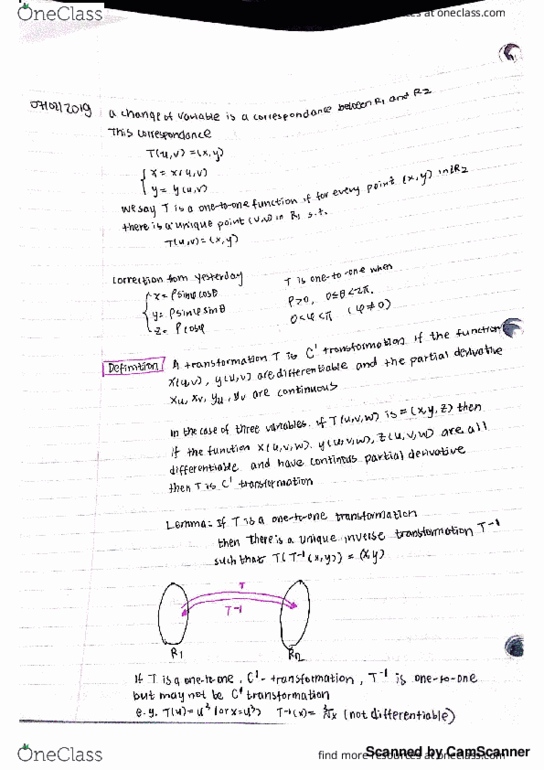 OneClass
find more resources at oneclass.com
07/02/2019 a change of variable is a correspondance between R1 and R2
This correspondance
T(u,v) = (x,y)
{ x = x(u,v)
y = y(u,v)
we say T is a one-to-one function if for every point (x,y) in R2
there is a unique point (u,v) in R1 s.t.
T(u,v) = (x,y)
correction from yesterday
{ x = ρsinφcosθ
y = ρsinφsinθ
z = ρcosφ
T is one-to-one when
ρ>0, 0≤θ<2π.
0<φ<π (φ≠0)
Definition A transformation T is C' transformation if the function
x(u,v), y(u,v) are differentiable and the partial derivative
xu, xv, yu, yv are continuous
In the case of three variables. if T(u,v,w) is = (x,y,z) then
if the function x(u,v,w). y(u,v,w), z(u,v,w) are all
differentiable and have continous partial derivative
then T is C' transformation
Lemma: If T is a one-to-one transformation
then there is a unique inverse transformation T-1
such that T(T-1(x,y)) = (x,y)
T
T-1
R1 R2
If T is a one-to-one, C'-transformation, T-1 is one-to-one
but may not be C' transformation
e.g. T(u)=u³ (or x=u³) T-1(x) = ³√x (not differentiable)
OneClass
find more resources at oneclass.com
Scanned by CamScanner